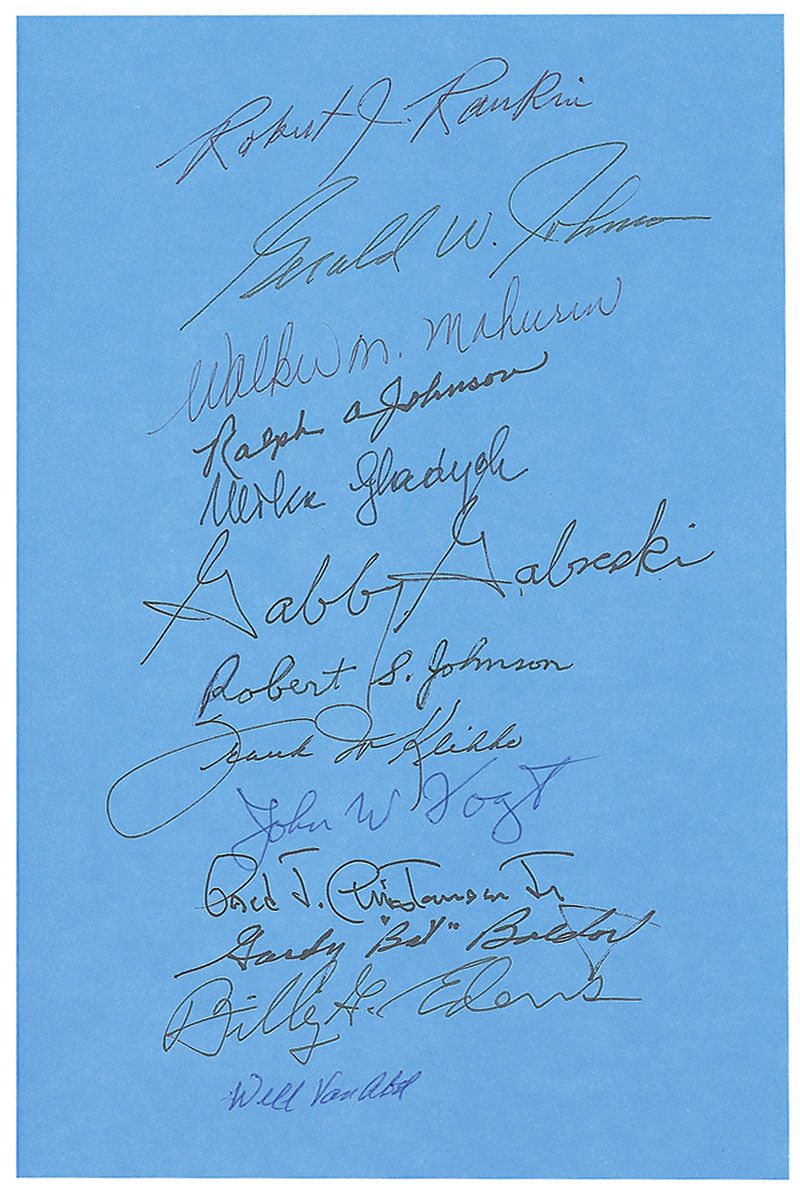 Robert J. Rankin
Gerald W. Johnson
Walker M. Mahurin
Ralph A Johnson
Mike Gladych
Gabby Gabreski
Robert S. Johnson
Frank W Klibbe
John W Vogt
Fred J. Christensen Jr.
"Bill"
Billy G. Edens
Will Van Abel